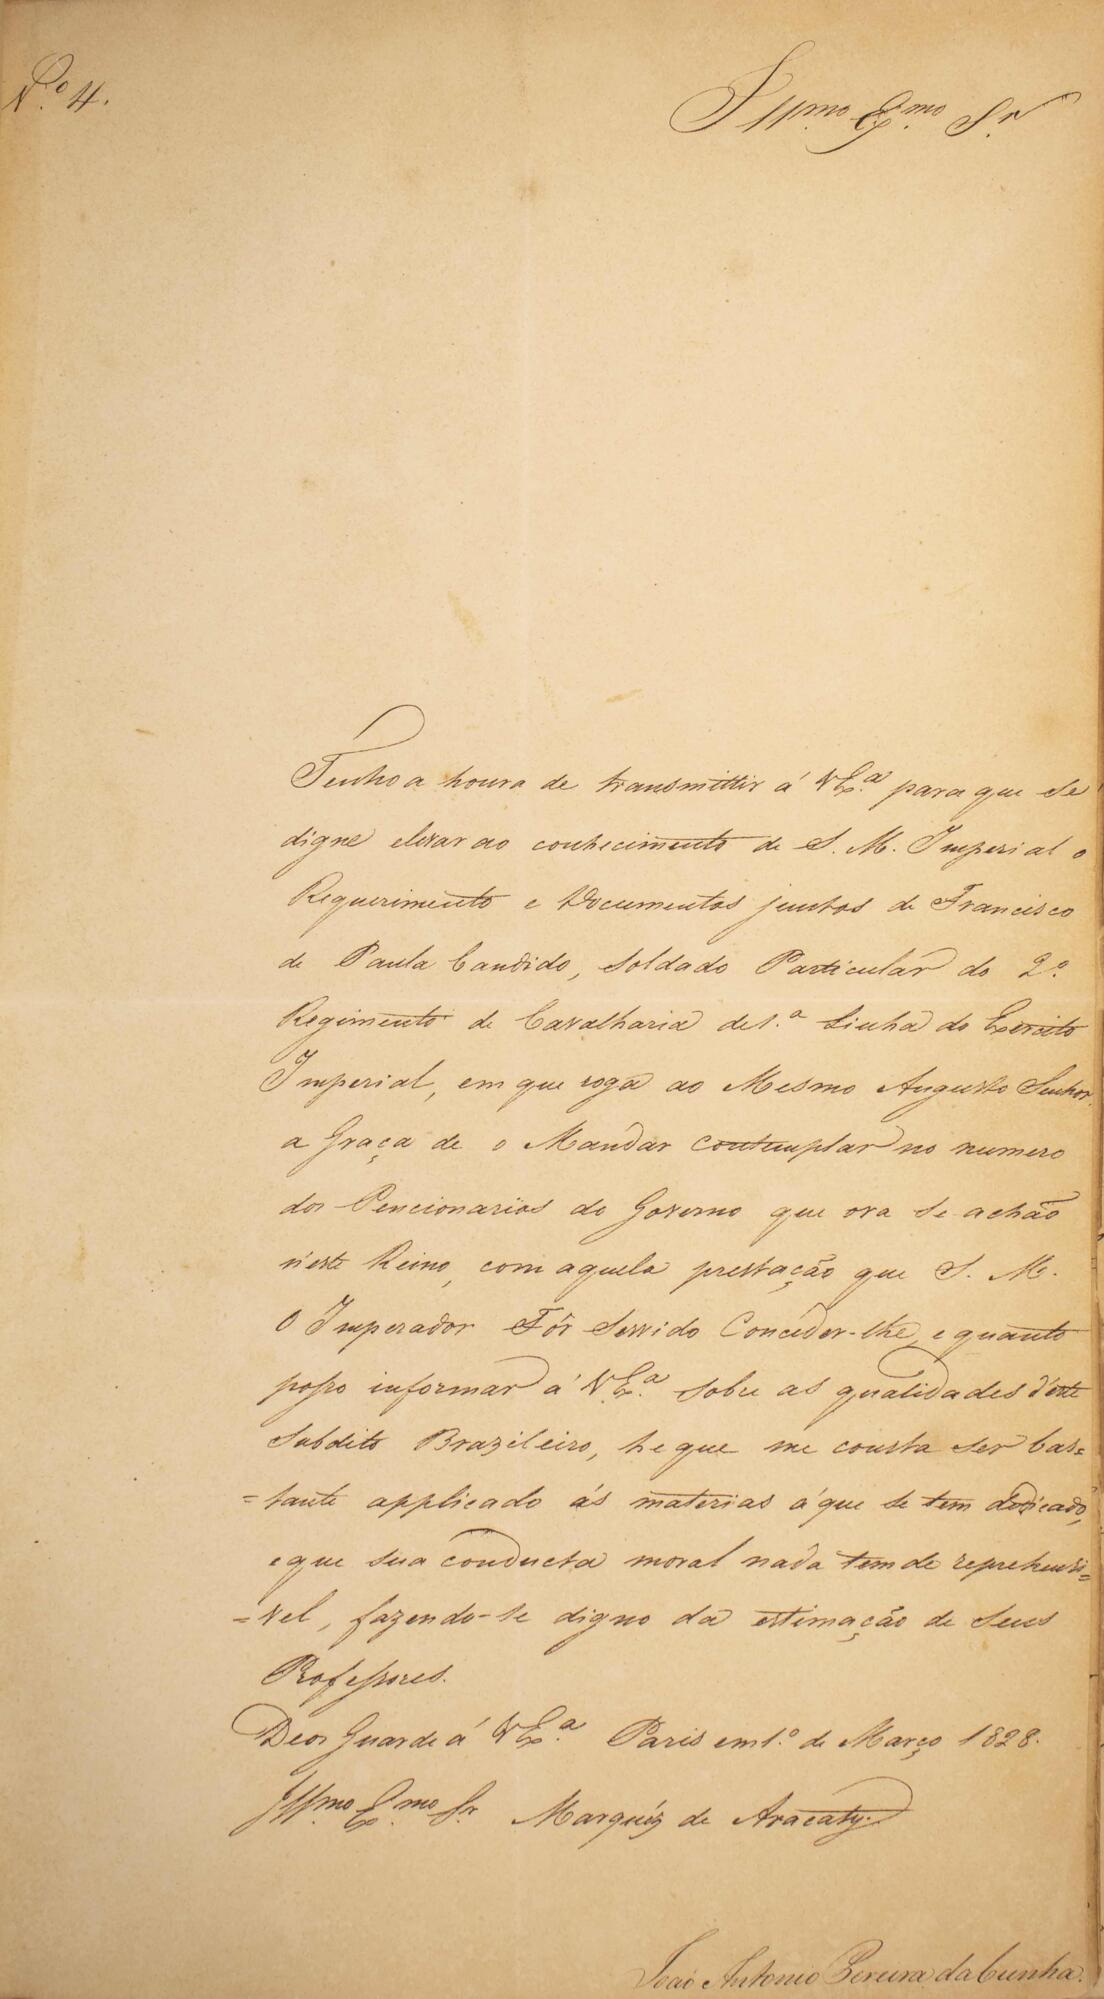 N.º 4.
Ill.mo Ex.mo Sr.
Tenho a honra de transmittir á V Ex.ª para que se
digne elevar ao conhecimento de S. M. Imperial o
Requerimento e Documentos juntos de Francisco
de Paula Candido, Soldado Particular do 2.º
Regimento de Cavalharia de 1.ª Linha do Exercito
Imperial, em que roga ao Mesmo Augusto Senhor
a Graça de o Mandar contemplar no numero
dos Pencionarios do Governo que ora se achão
n'este Reino, com aquela prestação que S. M.
O Imperador Fôr Servido Conceder-lhe, e quanto
posso informar á V Ex.ª sobre as qualidades d'este
Subdito Brazileiro, he que me consta ser bas=
=tante applicado ás materias á que se tem dedicado,
e que sua conducta moral nada tem de reprehensi=
=vel, fazendo-se digno da estimação de Seus
Professores.
Deos Guarde á V Ex.ª Paris em 1.º de Março 1828.
Ill.mo Ex.mo Sr. Marquéz de Aracaty.
João Antonio Pereira da Cunha.